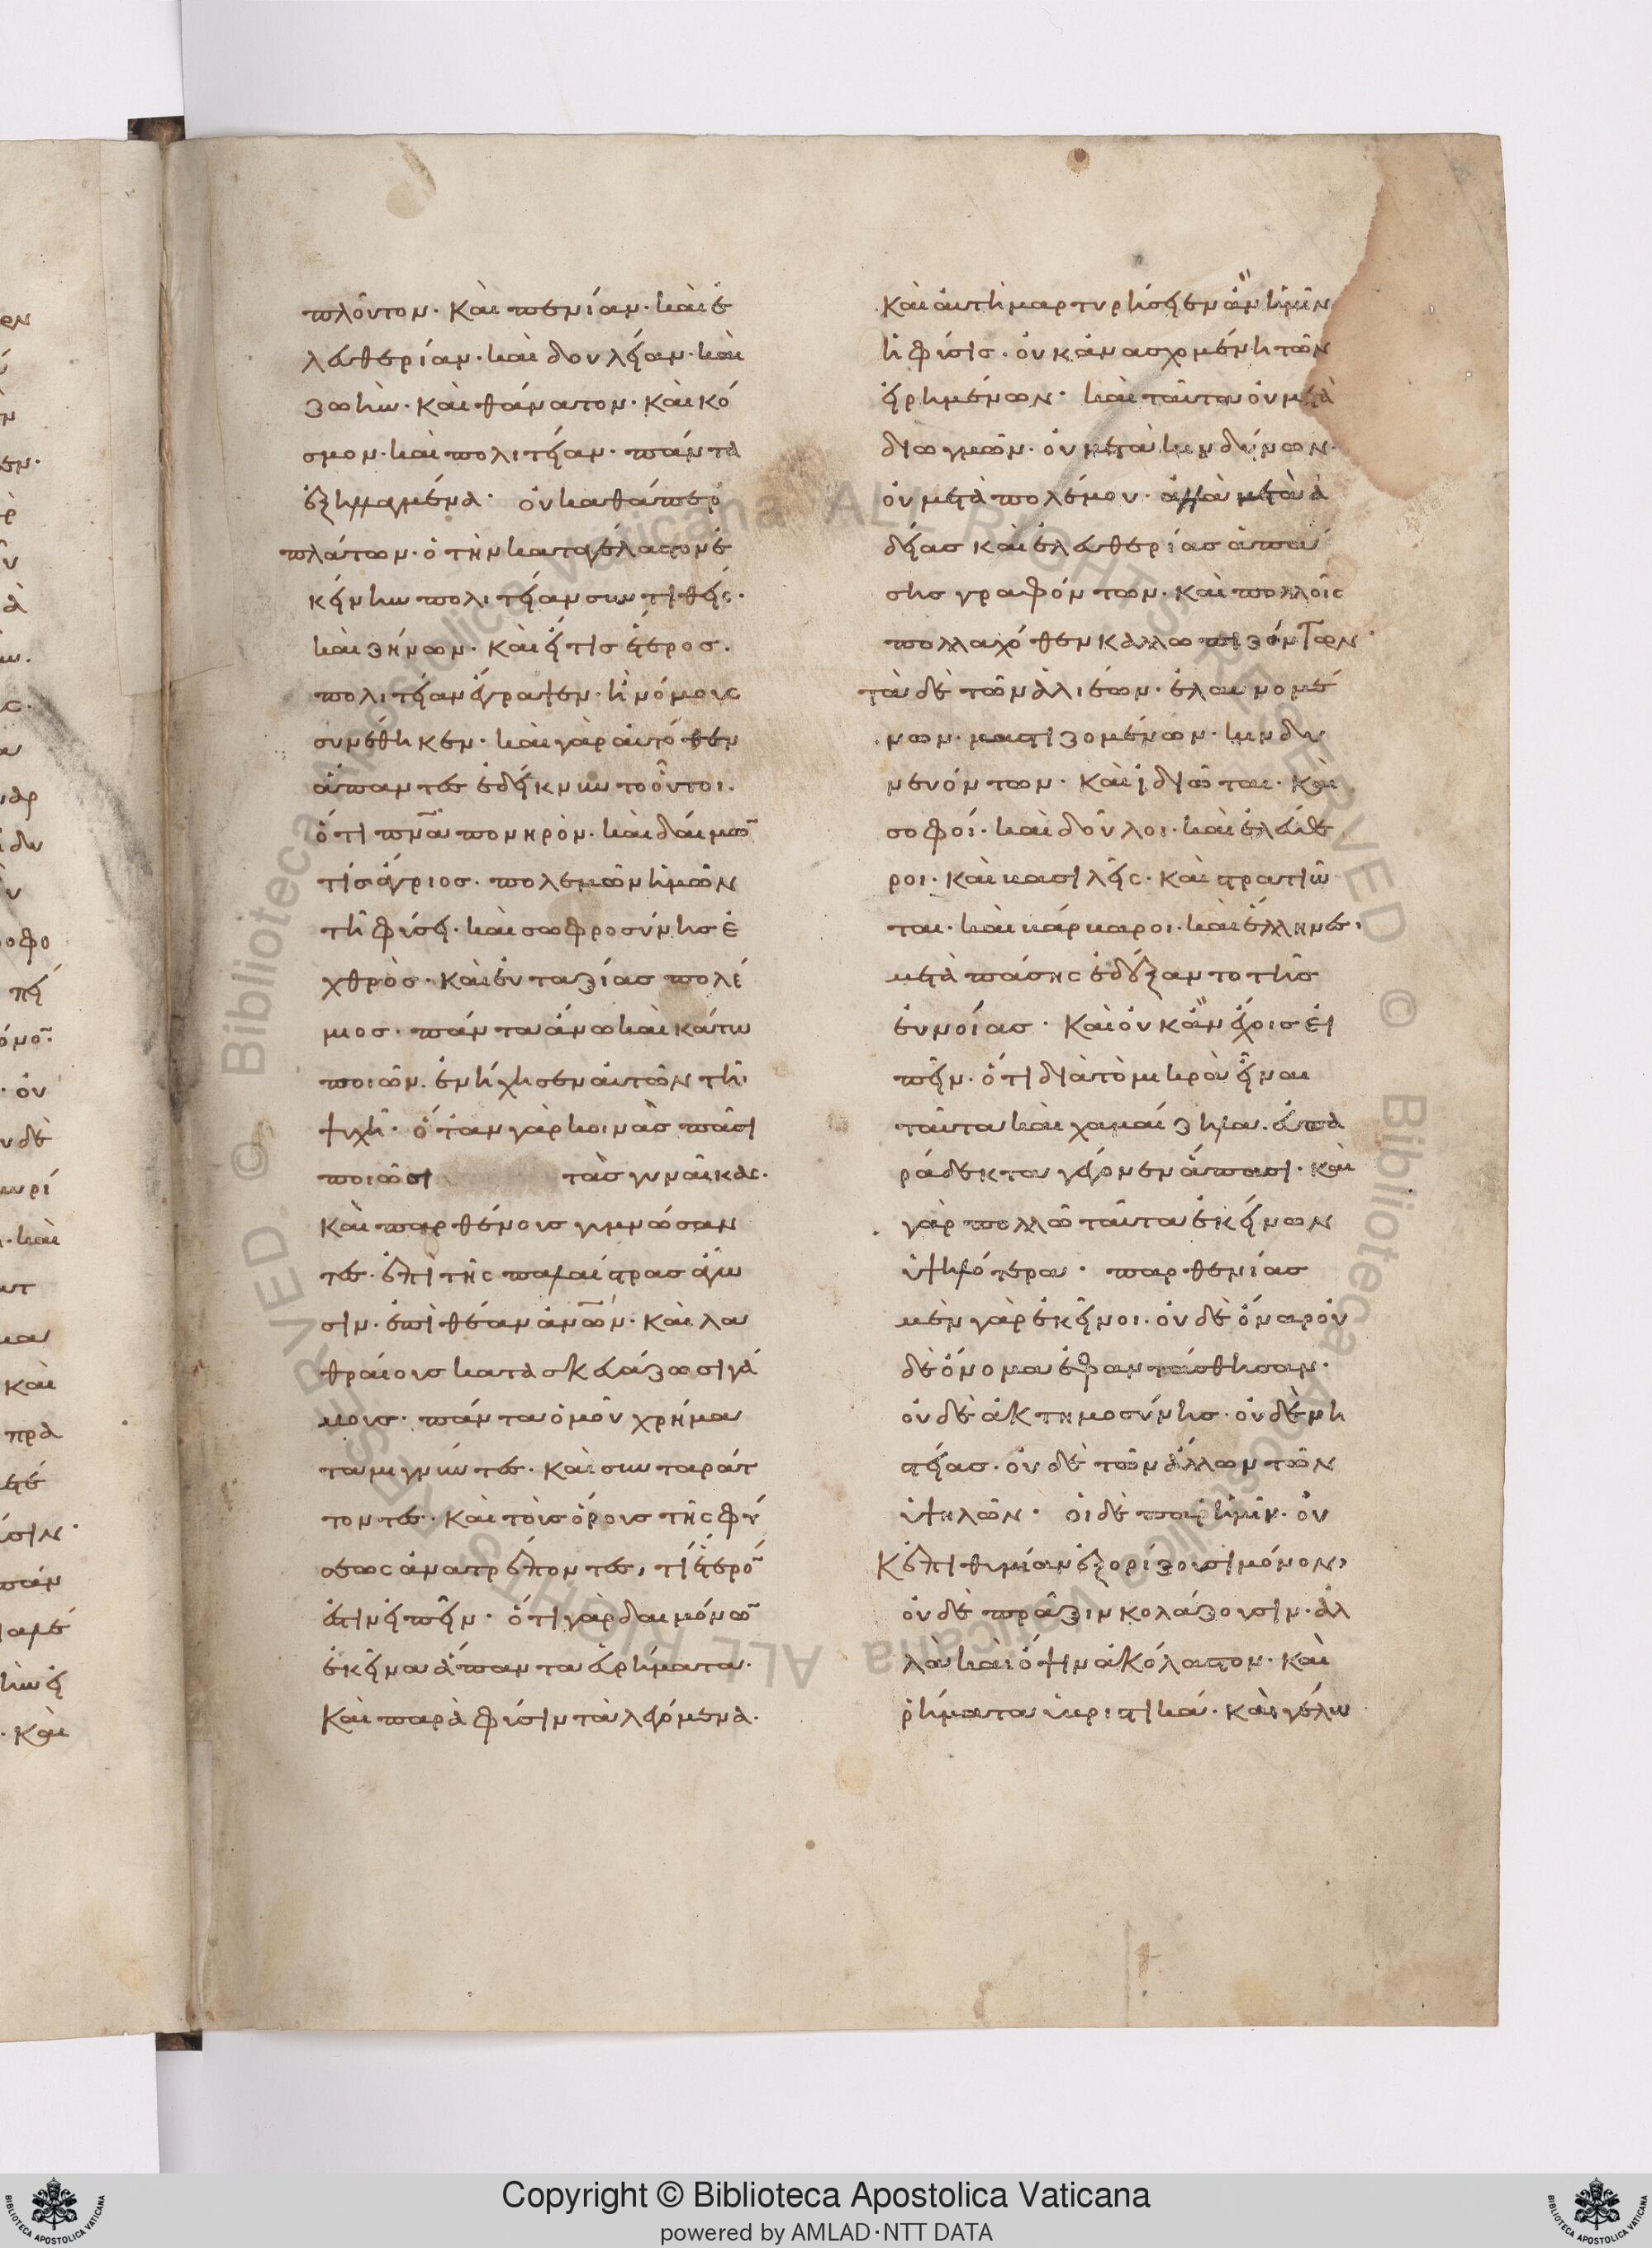 πλοῦτον· καὶ πενίαν· καὶ ἐ
λευθερίαν· καὶ δουλείαν· καὶ
ζωὴν· καὶ θάνατον· καὶ κό
σμον· καὶ πολιτείαν· πάντα
ἐξηλλαγμένα· οὐ καθάπερ
πλάτων· ὁ τὴν καταγέλαστον ἐ
κείνην πολιτείαν συντιθεὶς·
καὶ ζήνων· καὶ εἴ τις ἕτερος·
πολιτείαν ἔγραψεν· ἢ νόμους
συνέθηκεν· καὶ γὰρ αὐτόθεν
ἅπαντες ἐδείκνυντο οὗτοι·
ὅτι πνα πονηρὸν· καὶ δαίμω
τίς ἄγριος· πολεμῶν ἡμῶν
τῆ φύσει· καὶ σωφροσύνης ἐ
χθρὸς· καὶ εὐταξίας πολέ
μιος· πάντα ἄνω καὶ κάτω
ποιῶν· ἐνήχησεν αὐτῶν τῆ
ψυχῆ· ὅταν γὰρ κοινὰς πᾶσι
ποιῶσι τὰς γυναῖκας·
καὶ παρθένους γυμνώσαν
τες· ἐπὶ τῆς παλαίστρας ἄγω
σιν· ἐπὶ θέαν ἀνων· καὶ λα
θραίους κατασκευάζωσι γά
μους· πάντα ὁμοῦ χρήμα
τα μιγνύντες· καὶ συνταράτ
τοντες· καὶ τοὺς ὅρους τῆς φύ
σεως ἀνατρέποντες, τί ἕτερο
ἔστιν εἰπεῖν· ὅτι γὰρ δαιμόνω
ἐκεῖνα ἅπαντα εὑρήματα·
καὶ παρὰ φύσιν τὰ λεγόμενα·
καὶ αὐτὴ μαρτυρήσειεν ἂν ἡμῖν
ἡ φύσις· οὐκ ἀνασχομένη τῶν
εἰρημένων· καὶ ταῦτα οὐ μετὰ
διωγμῶν· οὐ μετὰ κινδύνων·
οὐ μετὰ πολέμου· ἀλλὰ μετὰ ἀ
δείας καὶ ἐλευθερίας ἁπά
σης γραφόντων· καὶ πολλοῖς
πολλαχόθεν καλλωπιζόντων·
τὰ δὲ τῶν ἁλιέων· ἐλαυνομέ
νων· μαστιζομένων· κινδυ
νευόντων· καὶ ἰδιῶται· καὶ
σοφοί· καὶ δοῦλοι· καὶ ἐλεύθε
ροι· καὶ βασιλεῖς· καὶ στρατιῶ
ται· καὶ βάρβαροι· καὶ ἕλληνες·
μετὰ πάσης ἐδέξαντο τῆς
εὐνοίας· καὶ οὐκ ἂν ἔχοις εἰ
πεῖν· ὅτι διὰ τὸ μικρὰ εἶναι
ταῦτα καὶ χαμαίζηλα· εὐπα
ράδεκτα γέγονεν ἅπασι· καὶ
γὰρ πολλῶ ταῦτα ἐκείνων
ὑψηλότερα· παρθενίας
μὲν γὰρ ἐκεῖνοι· οὐδὲ ὄναρ οὐ
δὲ ὄνομα ἐφαντάσθησαν·
οὐδὲ ἀκτημοσύνης· οὐδὲ νη
στείας· οὐδὲ τῶν ἄλλων τῶν
ὑψηλῶν· οἱ δὲ παρ ἡμῖν· οὐ
κ ἐπιθυμίαν ἐξορίζουσι μόνον,
οὐδὲ πρᾶξιν κολάζουσιν· ἀλ
λὰ καὶ ὄψιν ἀκόλαστον· καὶ
ῥήματα ὑβριστικά· καὶ γέλω
Copyright © Biblioteca Apostolica Vaticana
powered by AMLAD·NTT DATA